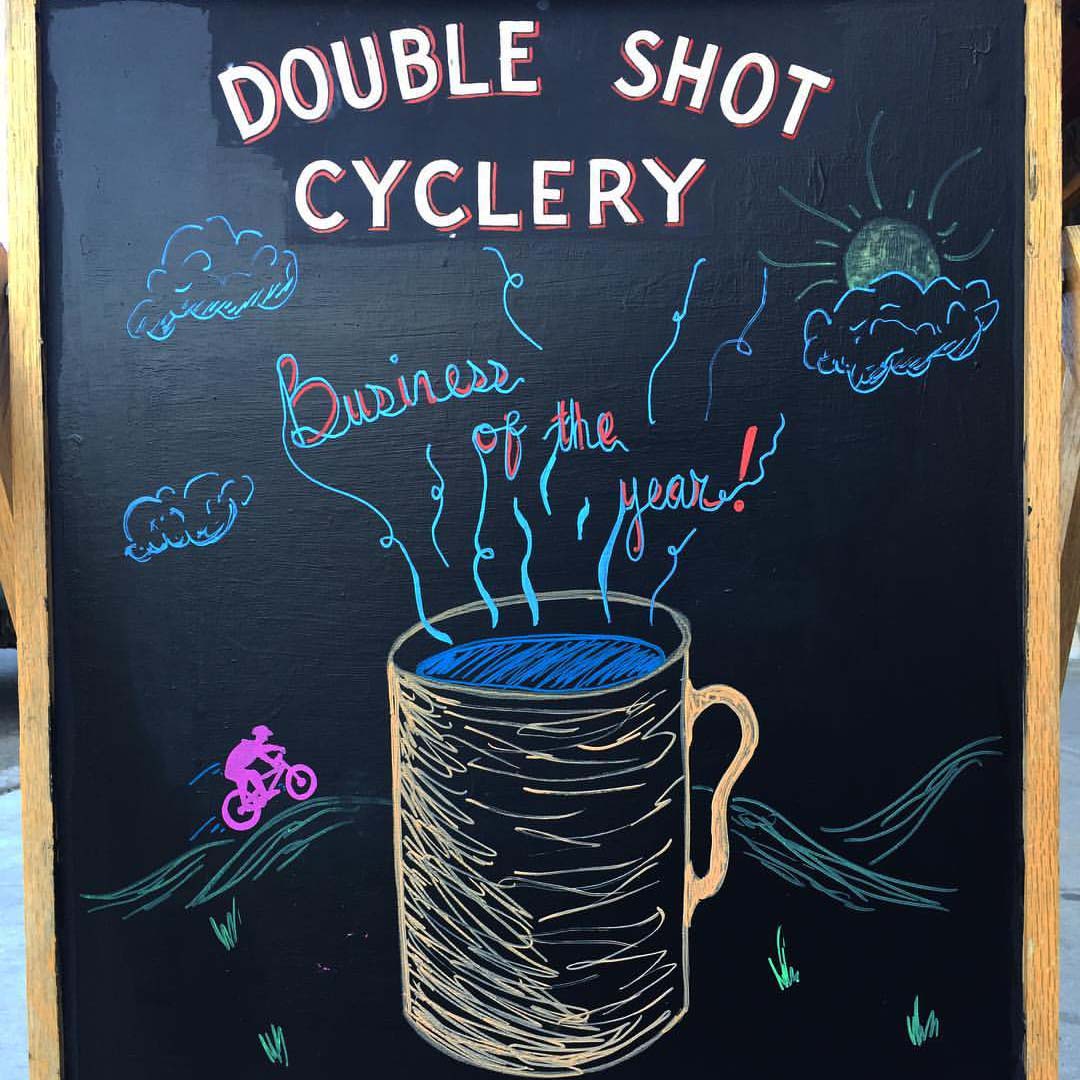 DOUBLE SHOT
CYCLERY
Business
of the
year!